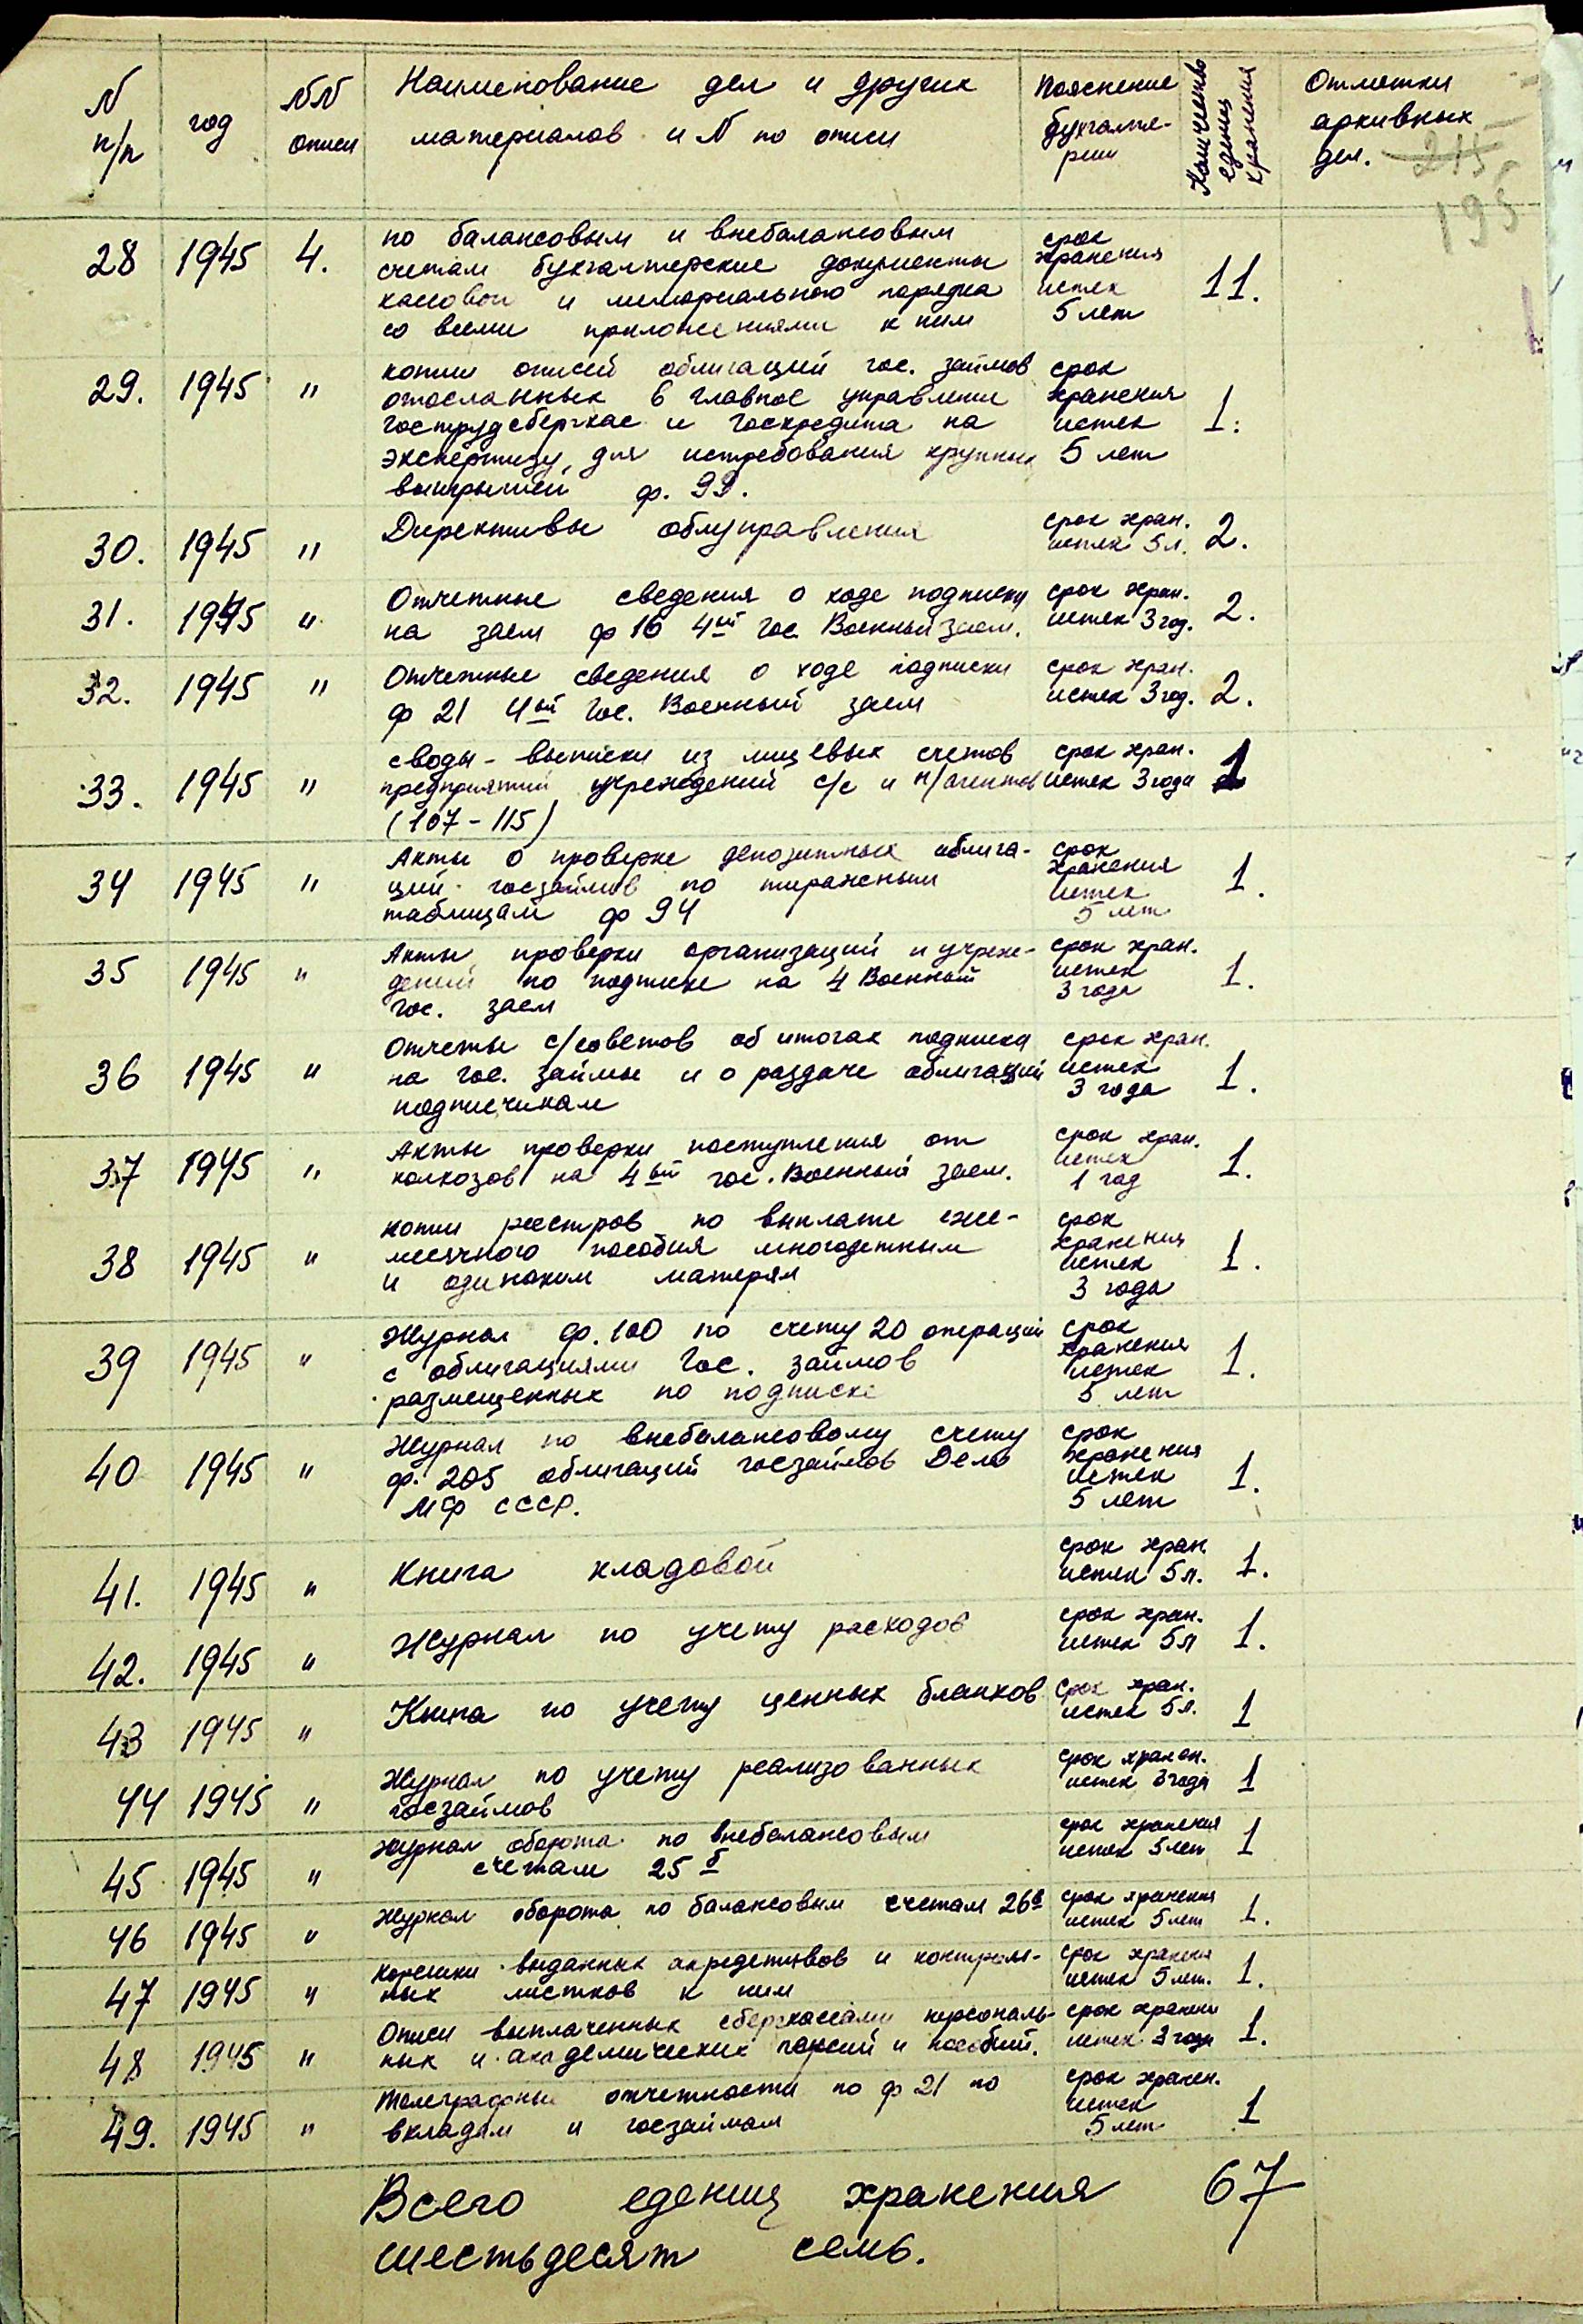 N п/п год NN описи Наименование дел и других материалов и N по описи Пояснение бухгалте-рии Количество единиц хранения Отметки архивных дел.
215
195
28 1945 4. по балансовым и внебалансовым срок
счетам бухгалтерские документы хранения 11.
кассовои и мемориального порядка истек
со всеми приложениями к ним 5 лет
29. 1945 " копии описей облигаций гос. займов срок
отосланных в главное управление хранения
гострудсберкас и госкредита на истек 1.
экспертизу для истребования крупных 5 лет
выигрышей ф. 99.
30. 1945 " Директивы облуправления срок хран.
истек 5 л. 2.
31. 1945 " Отчетные сведения о ходе подписки срок хран.
на заем ф 16 4ый гос. Военный заем. истек 3 год. 2.
32. 1945 " Отчетные сведения о ходе подписки срок хран.
ф 21 4ый Гос. Военный заем истек 3 год. 2.
33. 1945 " своды - выписки из лицевых счетов срок хран.
предприятий учреждений с/с и н/агентов истек 3 года 1
(107 - 115)
34 1945 " Акты о проверке депозитных облига- срок
ций госзаймов по тиражным хранения истек 1.
таблицам ф 94 5 лет
35 1945 " Акты проверки организаций и учреж- срок хран.
дений по подписке на 4 Военный истек 1.
гос. заем 3 года
36 1945 " Отчеты с/советов об итогах подписки срок хран.
на гос. займы и о раздаче облигаций истек 1.
подписчикам 3 года
37 1945 " Акты проверки поступления от срок хран.
колхозов на 4ый гос. Военный заем. истек 1 год 1.
38 1945 " копии реестров по выплате еже- срок
месячного пособия многодетным хранения 1.
и одиноким матерям истек
3 года
39 1945 " Журнал ф. 100 по счету 20 операций срок
с облигациями Гос. займов хранения истек 1.
размещенных по подписке 5 лет
40 1945 " Журнал по внебалансовому счету срок
ф. 205 облигаций госзаймов Дело хранения истек 1.
МФ СССР. 5 лет
41. 1945 " Книга кладовой срок хран.
истек 5 л. 1.
42. 1945 " Журнал по учету расходов срок хран.
истек 5 л 1.
43 1945 " Книга по учету ценных бланков срок хран.
истек 5 л. 1
44 1945 " Журнал по учету реализованных срок хранен.
госзаймов истек 3 года 1
45 1945 " Журнал оборота по внебалансовым срок хранения
счетам 25 б истек 5 лет 1
46 1945 " Журнал оборота по балансовым счетам 26в срок хранения
истек 5 лет 1.
47 1945 " Корешки выданных акредетивов и контроль- срок хранения
ных листков к ним истек 5 лет. 1.
48 1945 " Описи выплаченных сберкассами персональ- срок хранени
ных и академических пенсий и пособий. истек 3 года 1.
49. 1945 " Телеграфные отчетности по ф 21 по срок хранен.
вкладам и госзаймам истек 1
5 лет
Всего едениц хранения 67
шестьдесят семь.